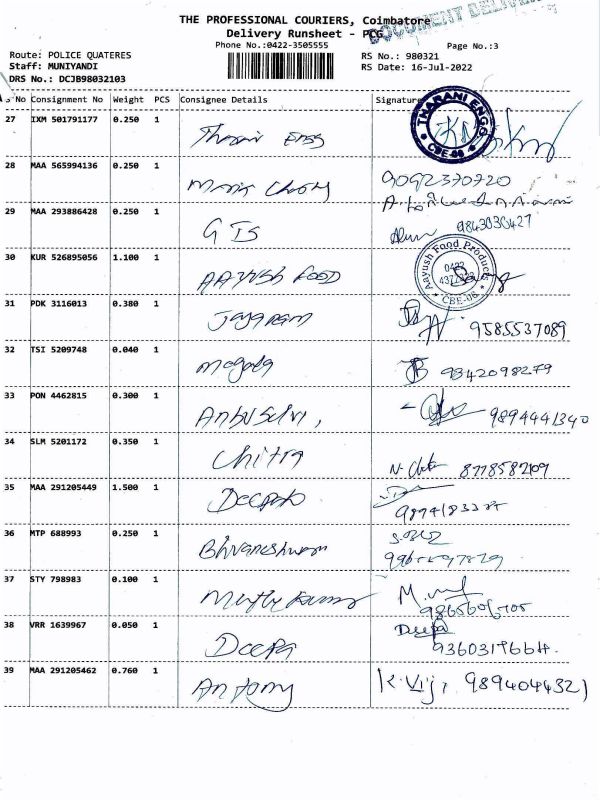 DOCUMENT DELIVER
THE PROFESSIONAL COURIERS, Coimbatore
Delivery Runsheet - PCG
Phone No.:0422-3505555
Page No.:3
Route: POLICE QUATERES
RS No.: 980321
Staff: MUNIYANDI
RS Date: 16-Jul-2022
DRS No.: DCJB98032103
S No Consignment No Weight PCS Consignee Details Signature
THARANI ENGG
CBE-06
27 IXM 501791177 0.250 1
28 MAA 565994136 0.250 1
9092370720
29 MAA 293886428 0.250 1
GIS
9843030427
30 KUR 526895056 1.100 1
AAYUSH FOOD
Aayush Food Products
0422
CBE-06
31 PDK 3116013 0.380 1
Jayaram
9585537089
32 TSI 5209748 0.040 1
9842098279
33 PON 4462815 0.300 1
Anbuselvi,
9894441340
34 SLM 5201172 0.350 1
Chitra
35 MAA 291205449 1.500 1
Deepak
36 MTP 688993 0.250 1
Bhuvaneshwari
37 STY 798983 0.100 1
38 VRR 1639967 0.050 1
Deepa
Deepa
39 MAA 291205462 0.760 1
Antony
K. Viji 9894044321